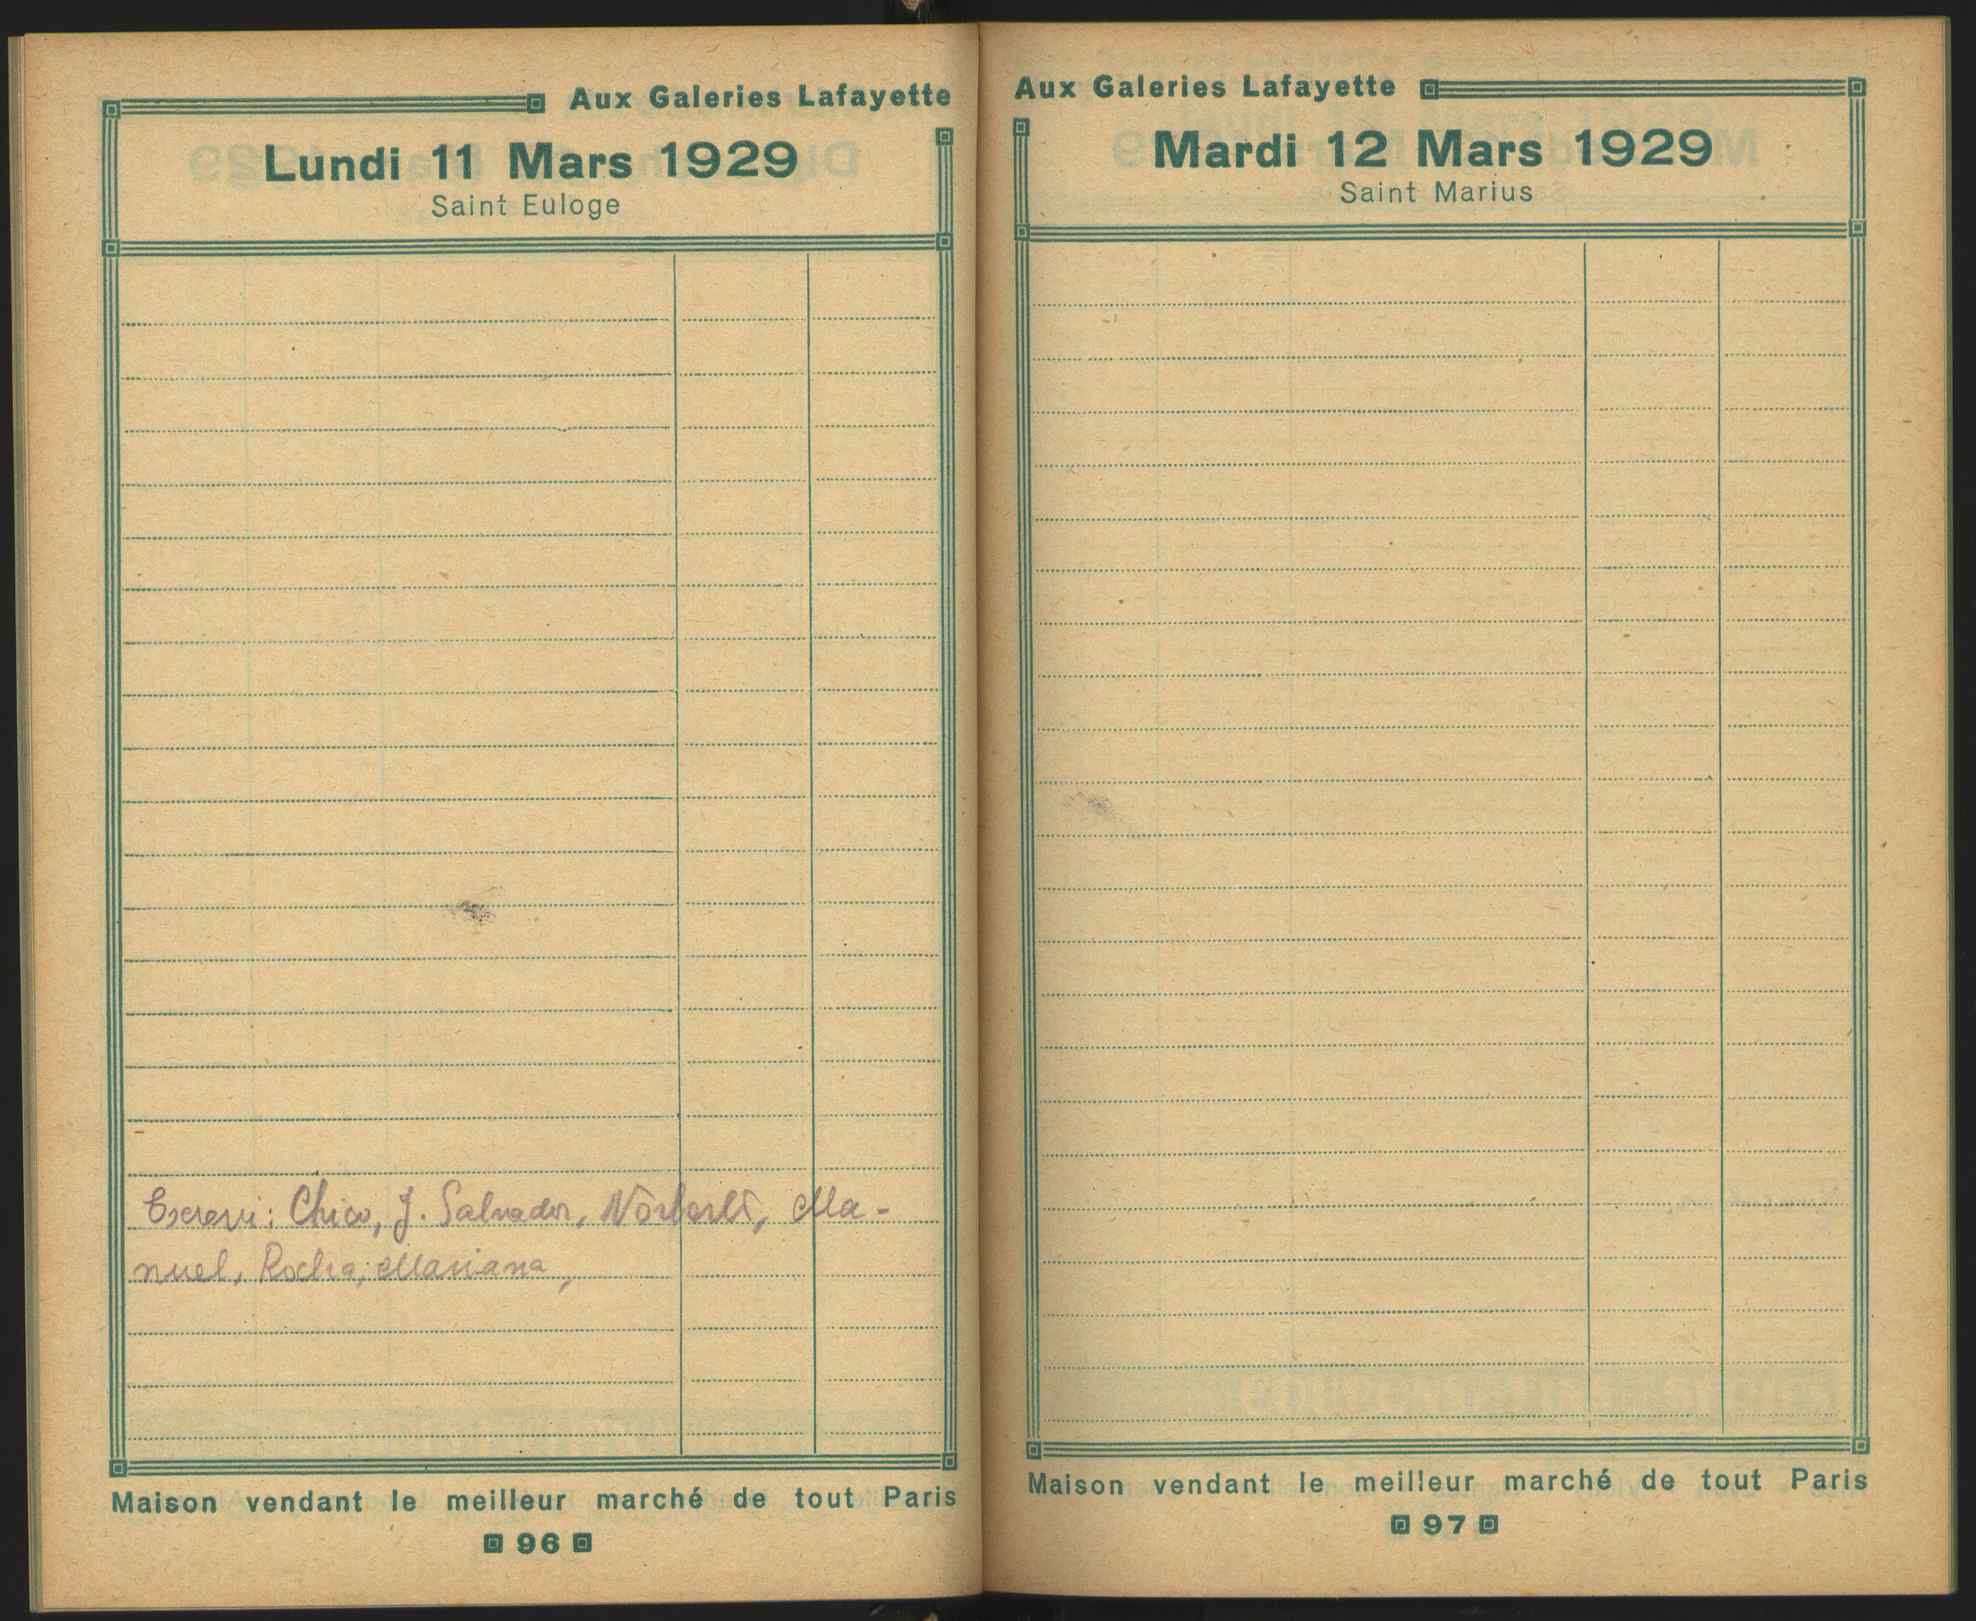 Aux Galeries Lafayette
Lundi 11 Mars 1929
Saint Euloge
Escrevi: Chico, J. Salvador, Norberto, Ma-
nuel, Rocha, Mariana,
Maison vendant le meilleur marché de tout Paris
96
Aux Galeries Lafayette
Mardi 12 Mars 1929
Saint Marius
Maison vendant le meilleur marché de tout Paris
97